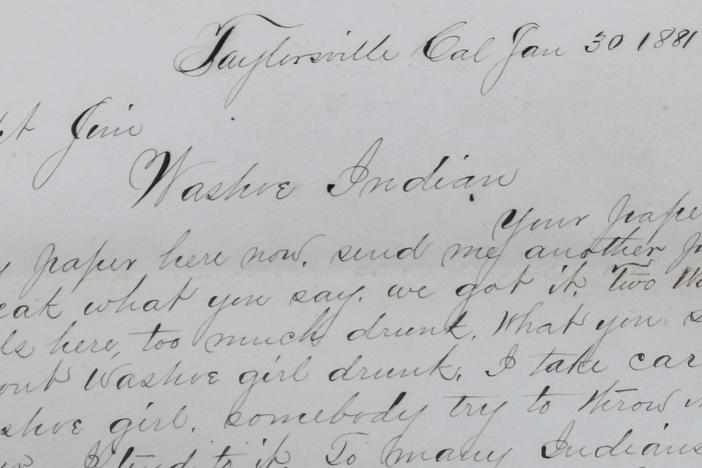 Taylorsville Cal Jan 30 1881
Jim
Washoe Indian
Your pape
paper here now. send me another
eak what you say. we got it. Two Wa
ls here, too much drunk. What you s
out Washoe girl drunk. I take car
shoe girl. somebody try to throw
I tend to it. To many Indians